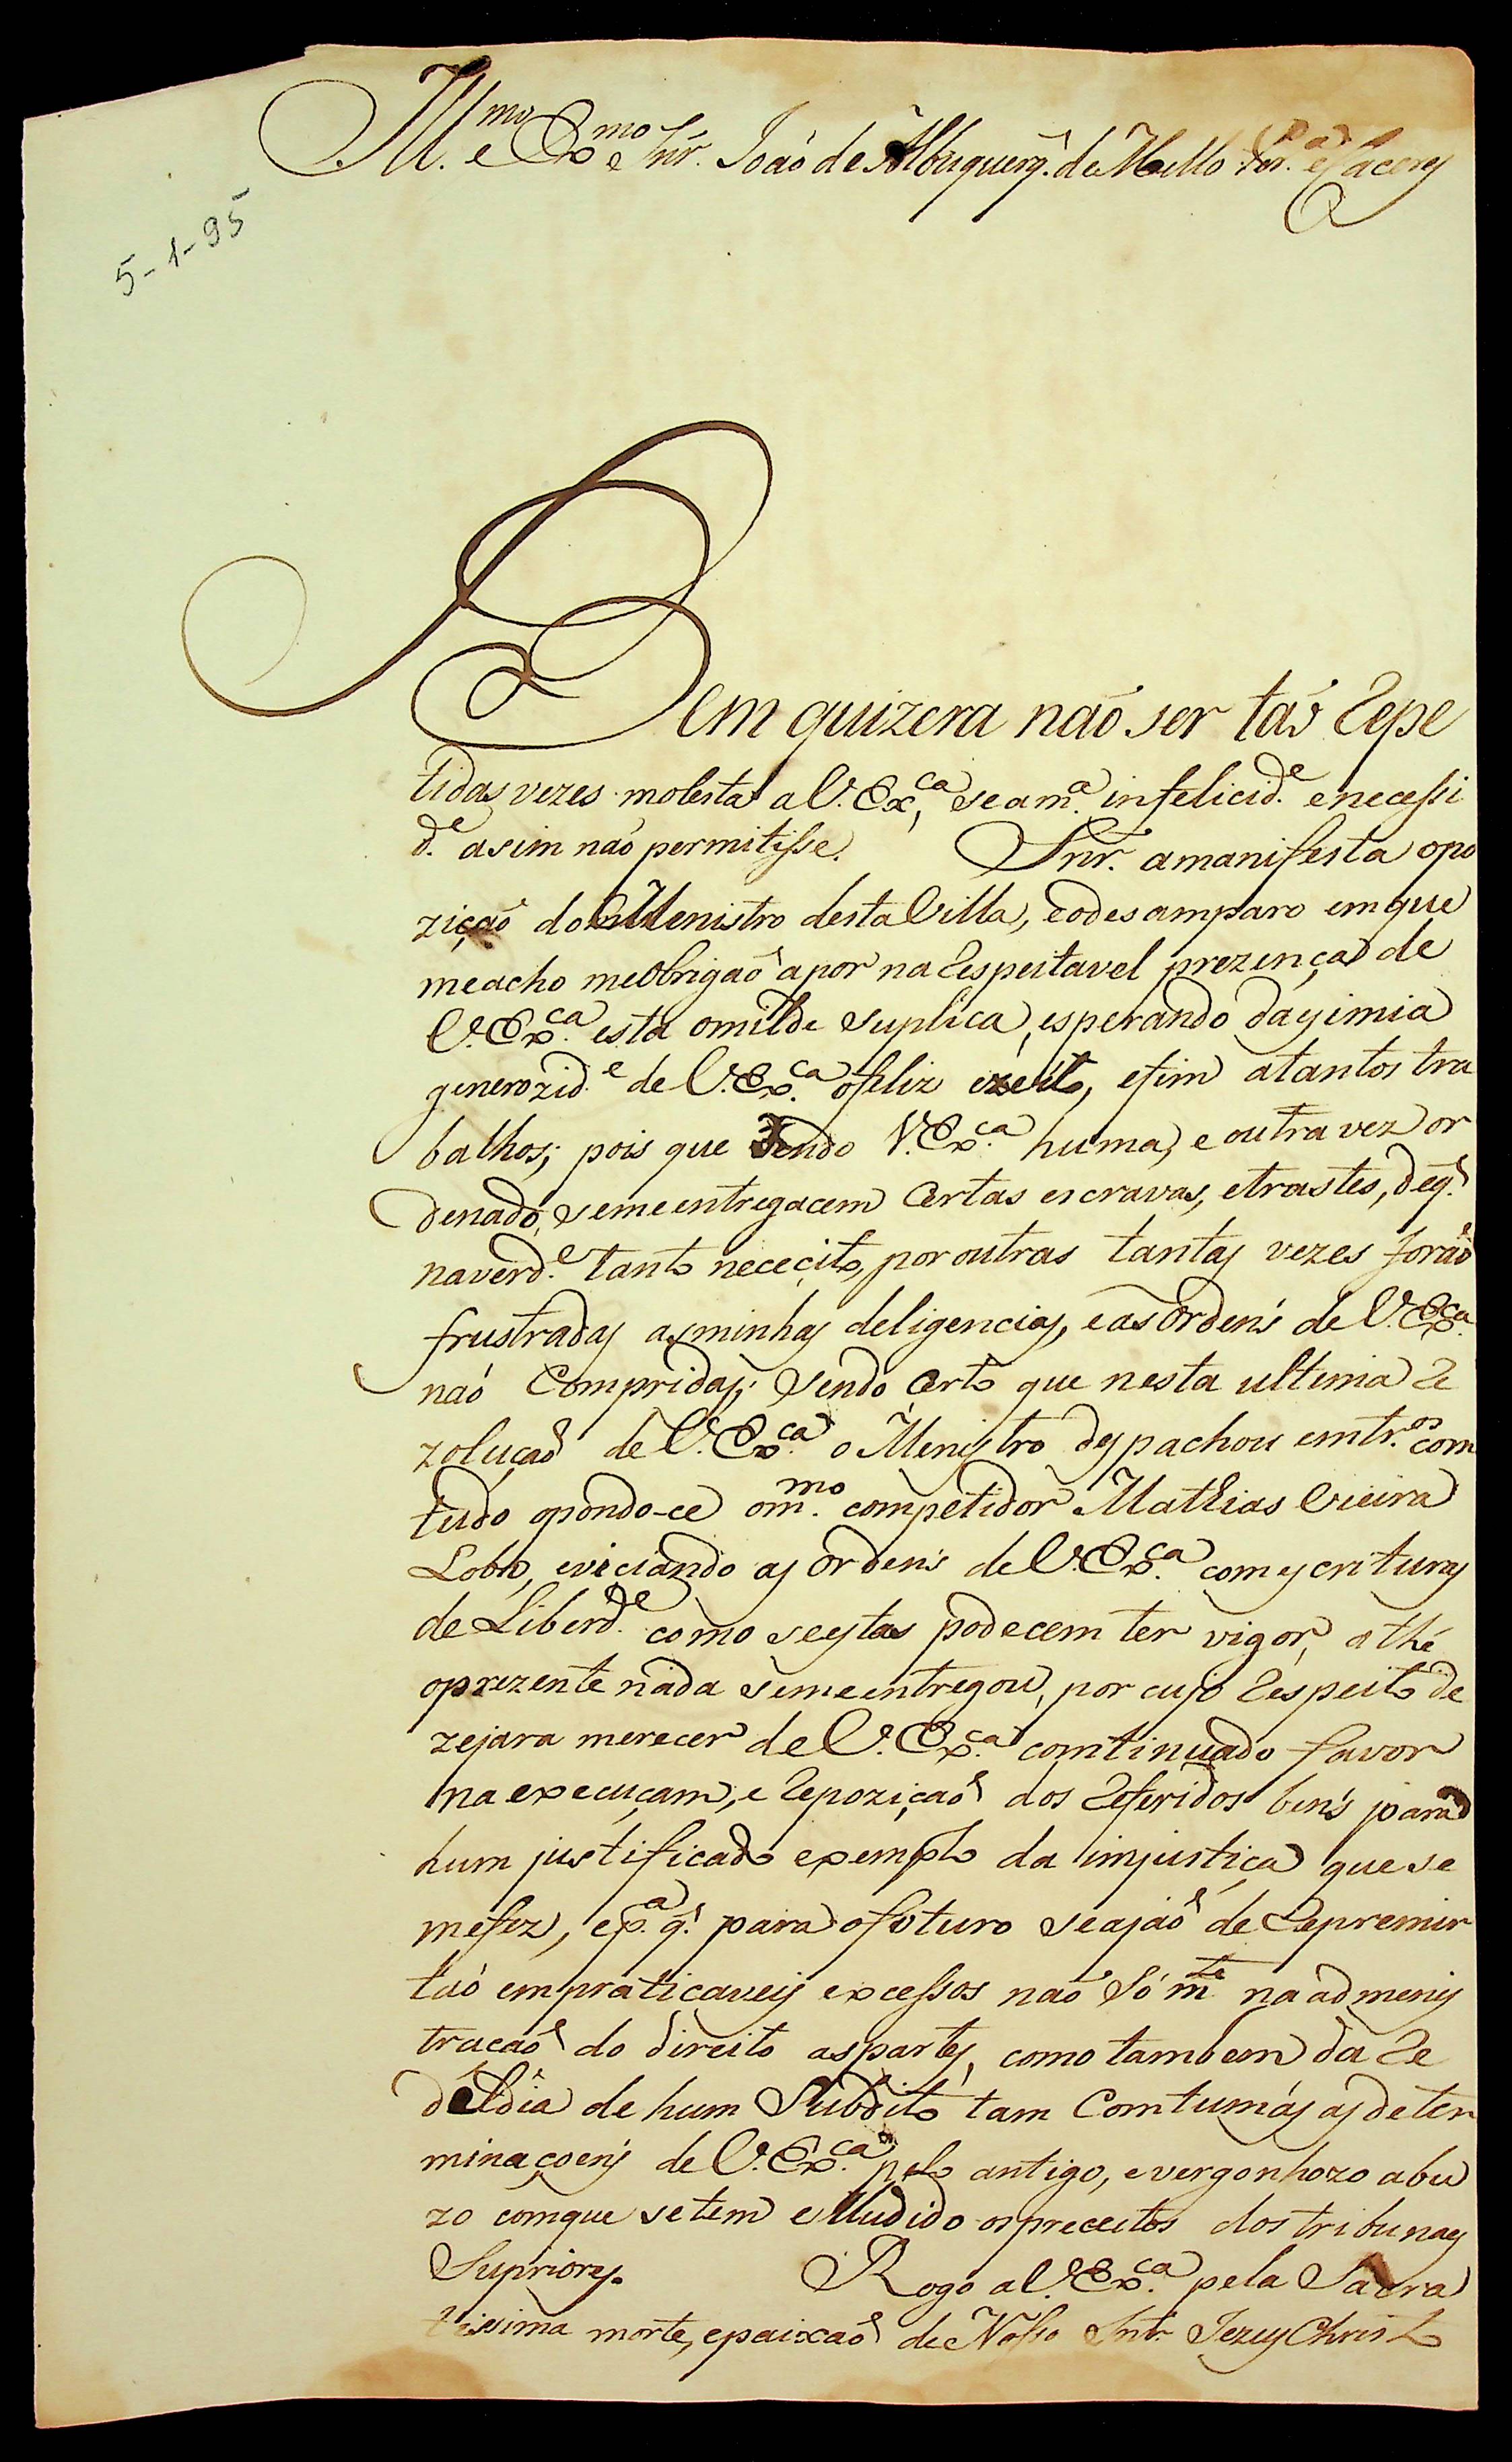 Ill.mo e Ex.mo Snr. João de Albuquerq.e de Mello Per.a e Caceres
5-1-95
Bem quizera não ser tão Repe
tidas vezes molesta a V. Ex.ca, se a m.a infelicid.e e necessi
d.e asim não permitisse. Snr. a manifesta opo
zição do Menistro desta Villa, e o desamparo em que
me acho me obrigão a por na Respeitavel prezença de
V. Ex.ca esta omilde suplica, esperando da eyimia
generozid.e de V. Ex.ca o feliz exeito, e fim a tantos tra
balhos; pois que tendo V. Ex.ca huma, e outra vez or
denado, se me entregacem Certas escravas, e trastes, de q.'
na verd.e tanto nececito, por outras tantas vezes forão
frustradas as minhas deligencias, e as Ordens de V. Ex.ca
não Compridas; Sendo Certo que nesta ultima Re
zolução de V. Ex.ca o Menistro despachou em tr.os com
tudo opondo-ce o m.mo competidor Mathias Vieira
Lobo, e viciando as Ordens de V. Ex.ca com escrituras
de Liberd.e como se estas podecem ter vigor, athé
o prezente nada se me entregou, por cujo Respeito de
zejara merecer de V. Ex.ca comtinuado favor
na execuçam, e Repozição dos Referidos bens para
hum justificado exemplo da imjustiça que se
me fez, e p.a q.' para o foturo se ajão de Repremir
tão empraticaveis excessos não Só m.te na admenis
tracão do direito as partes, como tambem da Re
beldia de hum Subdito tam Comtumás as deter
minaçoens de V. Ex.ca pelo antigo, e vergonhozo abu
zo com que se tem elludido os preceitos dos tribunaes
Supriores. Rogo a V. Ex.ca pela Sacra
tissima morte, e paixão de Nosso Snr. Jezus Christo